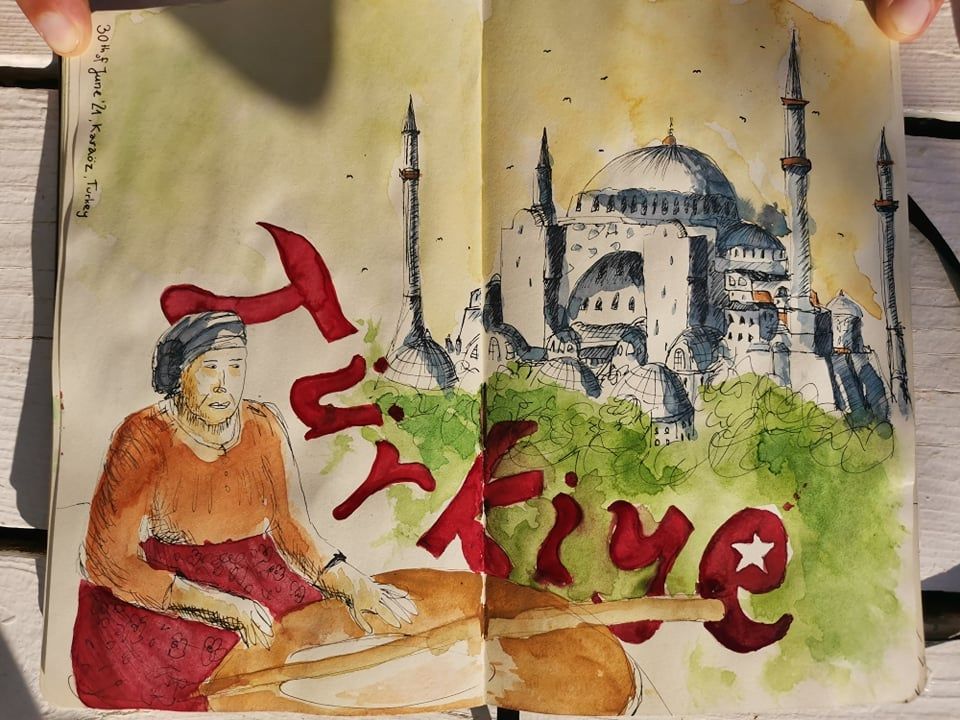 30th of June '21, Karaöz, Turkey
Türkiye